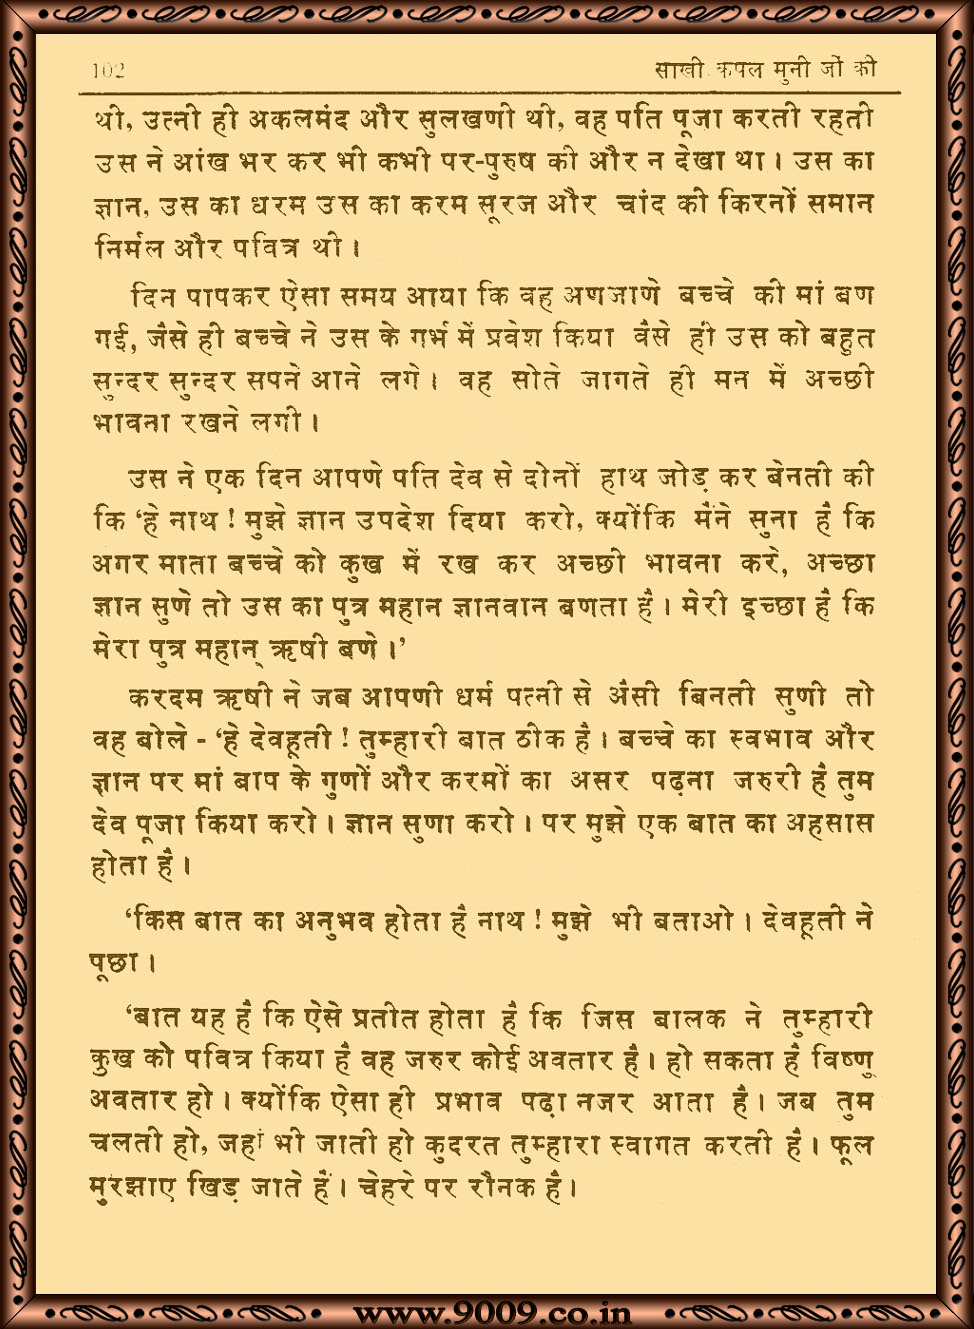 102 साखी कपल मुनी जी की
थी, उत्नी ही अकलमंद और सुलखणी थी, वह पति पूजा करती रहती
उस ने आंख भर कर भी कभी पर-पुरुष की और न देखा था । उस का
ज्ञान, उस का धरम उस का करम सूरज और चांद की किरनों समान
निर्मल और पवित्र थी ।
दिन पापकर ऐसा समय आया कि वह अणजाणे बच्चे की मां बण
गई, जैसे ही बच्चे ने उस के गर्भ में प्रवेश किया वैसे ही उस को बहुत
सुन्दर सुन्दर सपने आने लगे । वह सोते जागते ही मन में अच्छी
भावना रखने लगी ।
उस ने एक दिन आपणे पति देव से दोनों हाथ जोड़ कर बेनती की
कि ‘हे नाथ ! मुझे ज्ञान उपदेश दिया करो, क्योंकि मैंने सुना है कि
अगर माता बच्चे को कुख में रख कर अच्छी भावना करे, अच्छा
ज्ञान सुणे तो उस का पुत्र महान ज्ञानवान बणता है । मेरी इच्छा है कि
मेरा पुत्र महान् ऋषी बणे ।’
करदम ऋषी ने जब आपणी धर्म पत्नी से अैसी बिनती सुणी तो
वह बोले - ‘हे देवहूती ! तुम्हारी बात ठीक है । बच्चे का स्वभाव और
ज्ञान पर मां बाप के गुणों और करमों का असर पढ़ना जरुरी है तुम
देव पूजा किया करो । ज्ञान सुणा करो । पर मुझे एक बात का अहसास
होता है ।
‘किस बात का अनुभव होता है नाथ ! मुझे भी बताओ । देवहूती ने
पूछा ।
‘बात यह है कि ऐसे प्रतीत होता है कि जिस बालक ने तुम्हारी
कुख को पवित्र किया है वह जरुर कोई अवतार है । हो सकता है विष्णु
अवतार हो । क्योंकि ऐसा ही प्रभाव पढ़ा नजर आता है । जब तुम
चलती हो, जहां भी जाती हो कुदरत तुम्हारा स्वागत करती है । फूल
मुरझाए खिड़ जाते हैं । चेहरे पर रौनक है ।
www.9009.co.in